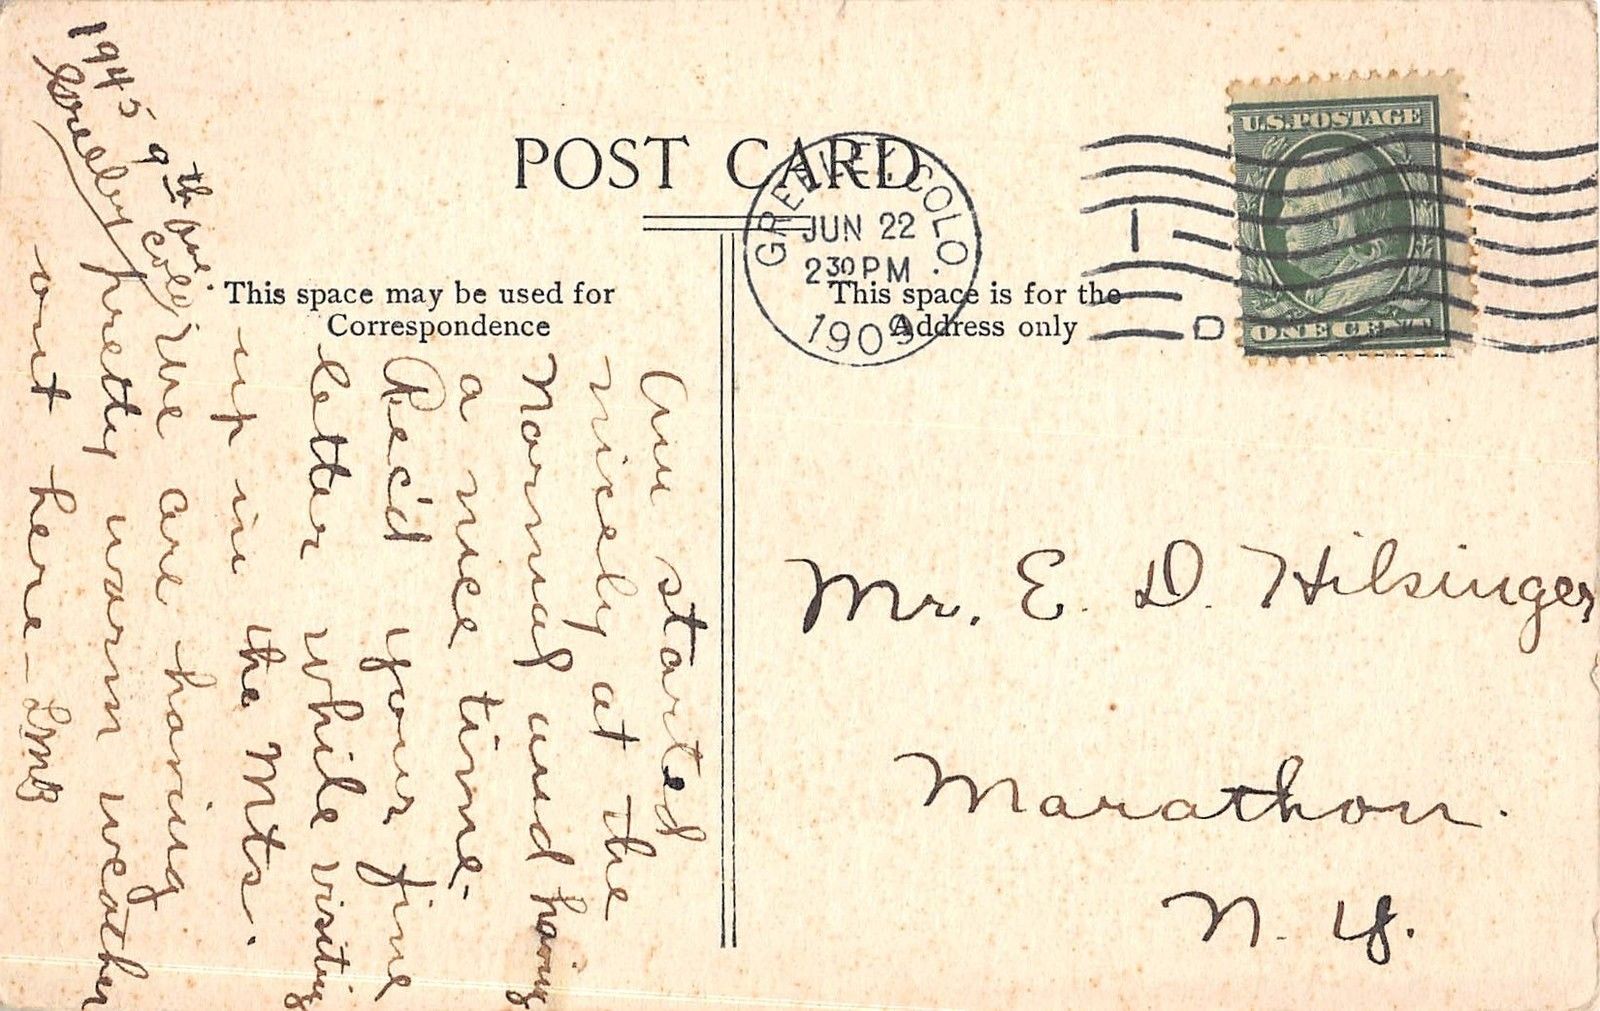 POST CARD
GREELEY, COLO.
JUN 22
2 30 PM
1909
1
D
U.S. POSTAGE
ONE CENT
This space may be used for
Correspondence
This space is for the
Address only
1945 9th Ave.
Greeley Colo
Am started
nicely at the
Normal and having
a nice time.
Rec'd your fine
letter while visiting
up in the Mts.
We are having
pretty warm weather
out here - LMB
Mr. E. D. Hilsinger
Marathon.
N. Y.